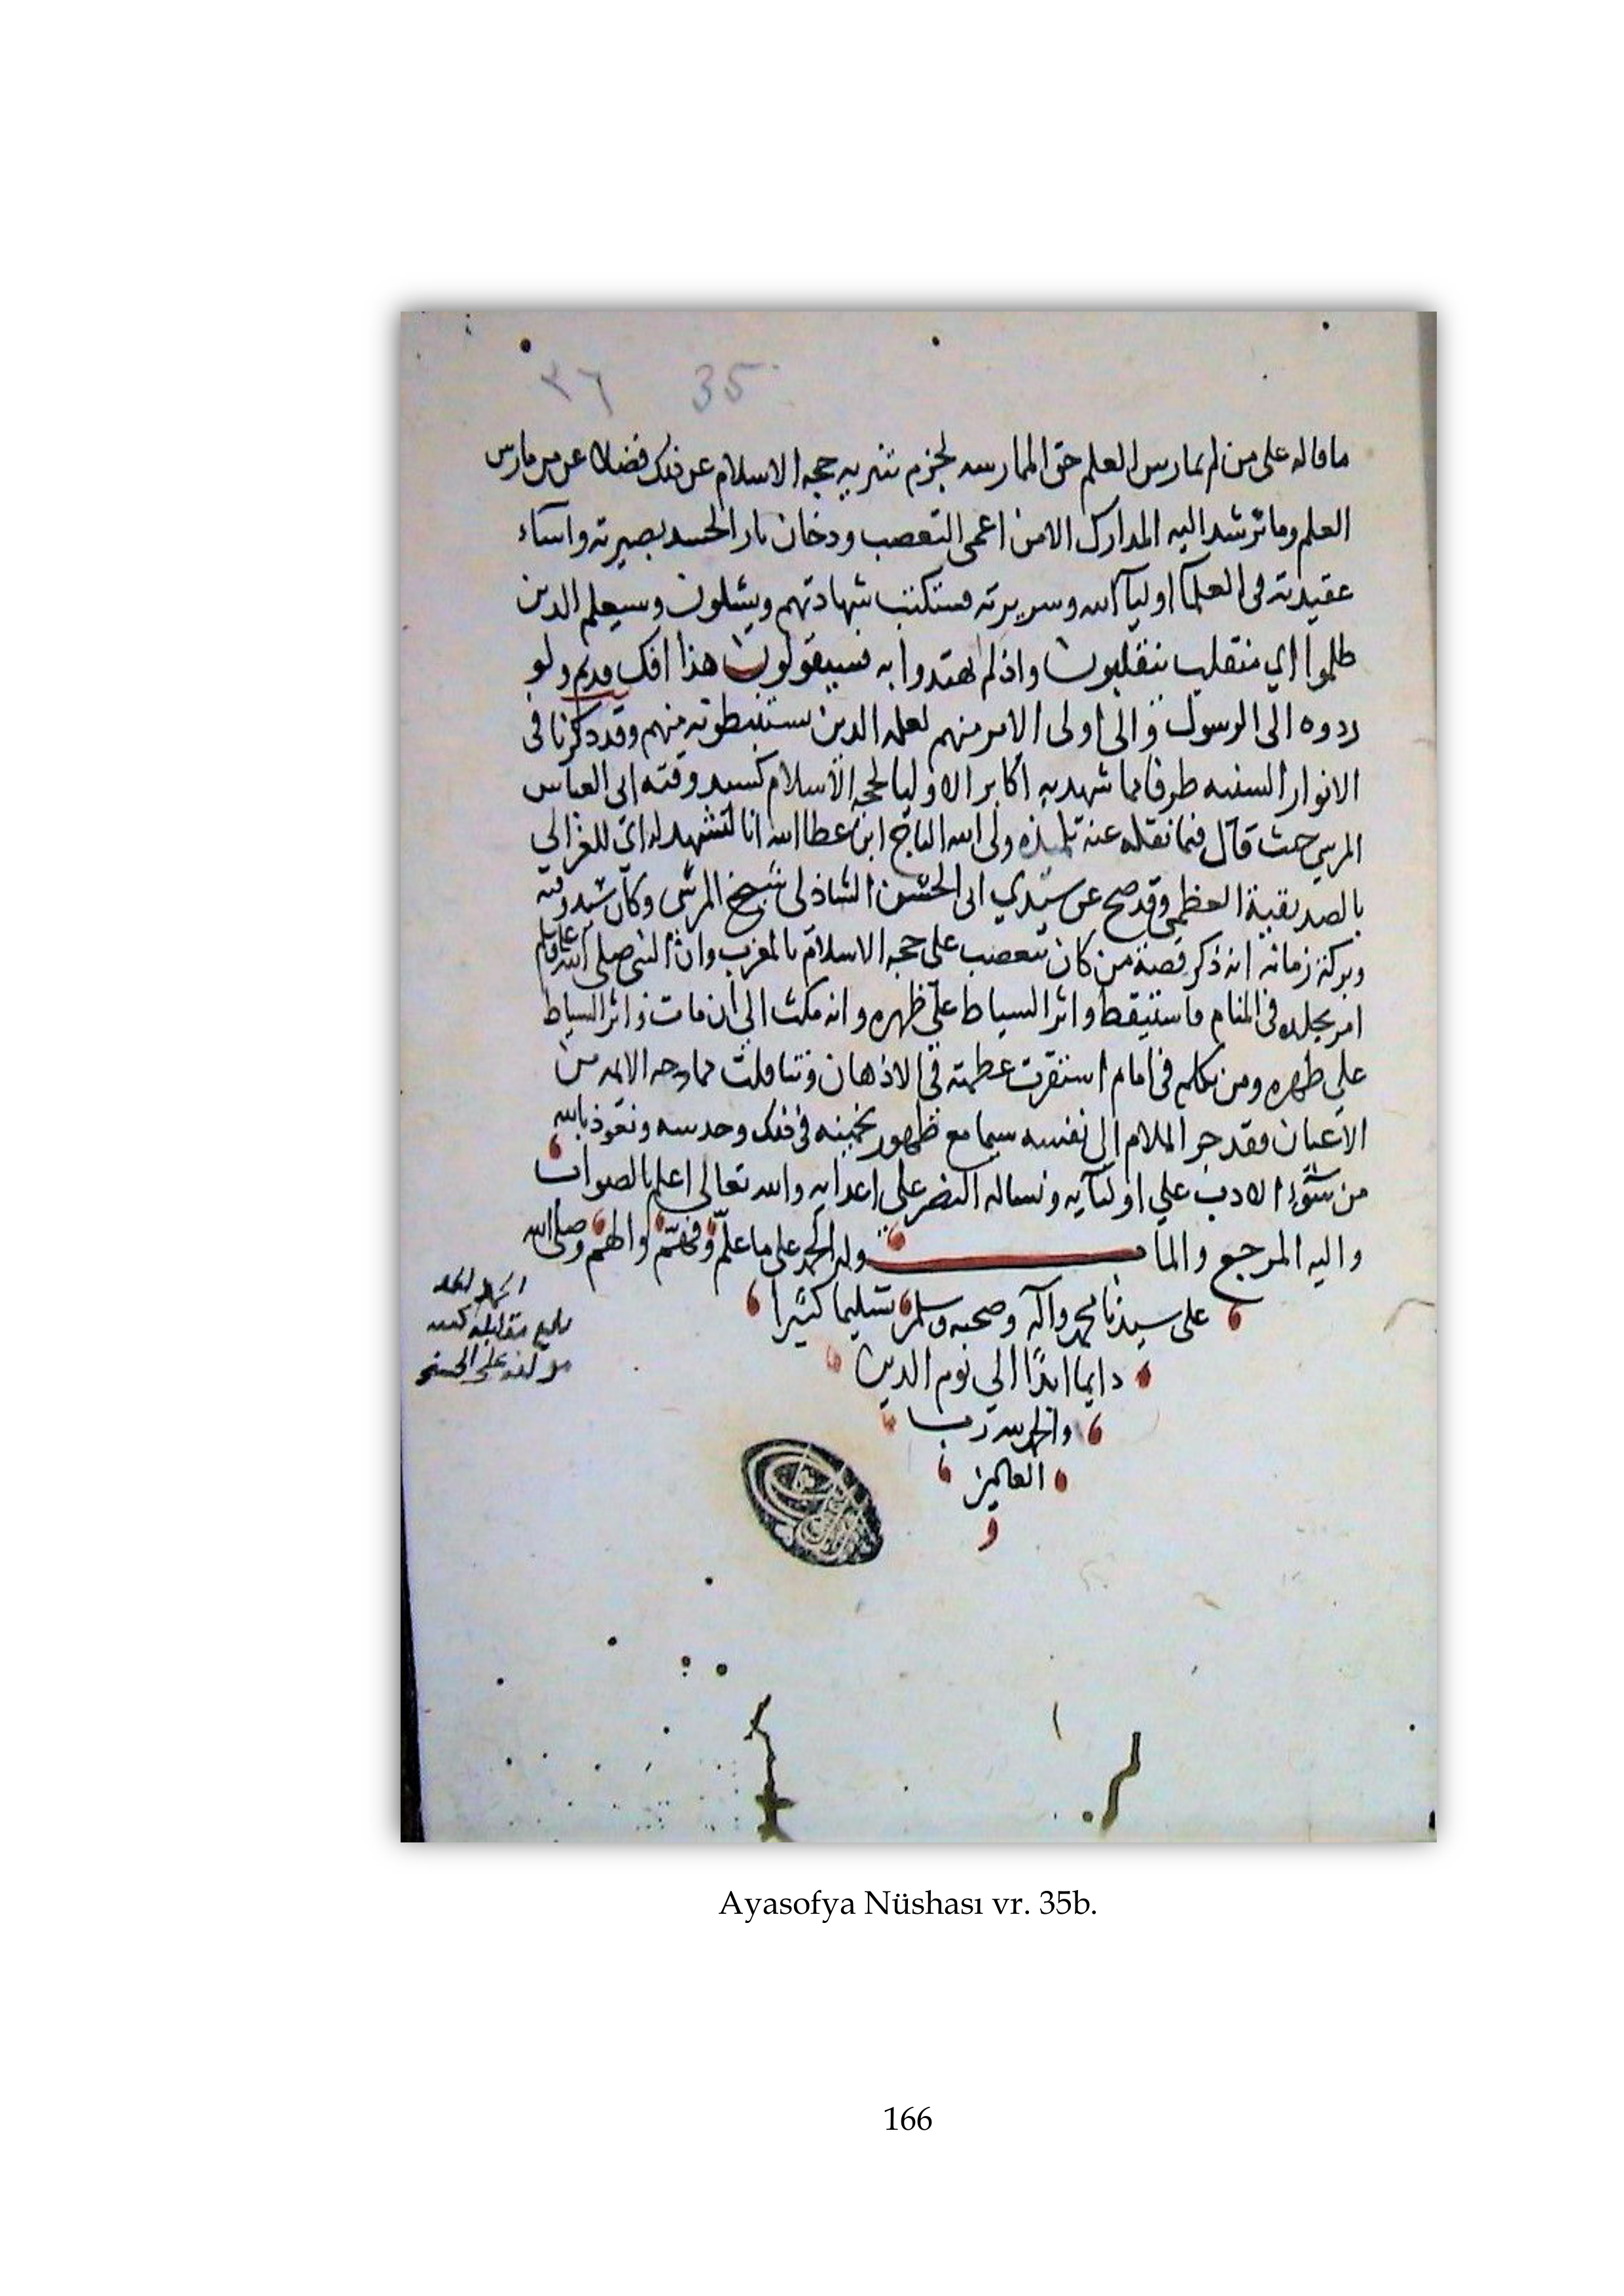 ٣٦ 35
ما قاله على من لم يمارس العلم حق الممارسه لجزم بتنزيه حجه الاسلام عن ذلك فضلا عن من مارس
العلم وما ترشد اليه المدارك الا من اعمى التعصب ودخان نار الحسد بصيرته واساء
عقيدته فى العلما اوليا الله وسريرته فستكتب شهادتهم ويسئلون وسيعلم الذين
ظلموا اي منقلب ينقلبون واذ لم يهتدوا به فسيقولون هذا افك قديم ولو
ردوه الى الرسول والى اولى الامر منهم لعلمه الذين يستنبطونه منهم وقد ذكرنا فى
الانوار السنيه طرفا مما شهد به اكابر الاوليا لحجه الاسلام كسيد وقته ابى العباس
المرسي حيث قال فيما نقله عنه تلميذه ولى الله التاج ابن عطا الله انا لنشهد له اي للغزالي
بالصديقية العظمى وقد صح عن سيدي ابى الحسن الشاذلى شيخ المرسى وكان سيد وقته
وبركة زمانه انه ذكر قصة من كان يتعصب على حجه الاسلام بالمغرب وان النبى صلى الله عليه وسلم
امر بجلده فى المنام فاستيقظ واثر السياط على ظهره وانه مكث الى ان مات واثر السياط
على ظهره ومن تكلم فى امام استقرت عظمته فى الاذهان وتناقلت ممادحه الايمه من
الاعيان فقد جر الملام الى نفسه سيما مع ظهور تخمينه فى ذلك وحدسه ونعوذ بالله
من سوء الادب على اوليآيه ونساله النصر على اعدايه والله تعالى اعلم بالصواب
واليه المرجع والماب وله الحمد على ما علم وفهم والهم وصلى الله
على سيدنا محمد وآله وصحبه وسلم تسليما كثيرا
دايما ابدا الى يوم الدين
والحمد لله رب
العالمين
بلغ مقابله كتبه
مولفه على الحسنى
Ayasofya Nüshası vr. 35b.
166